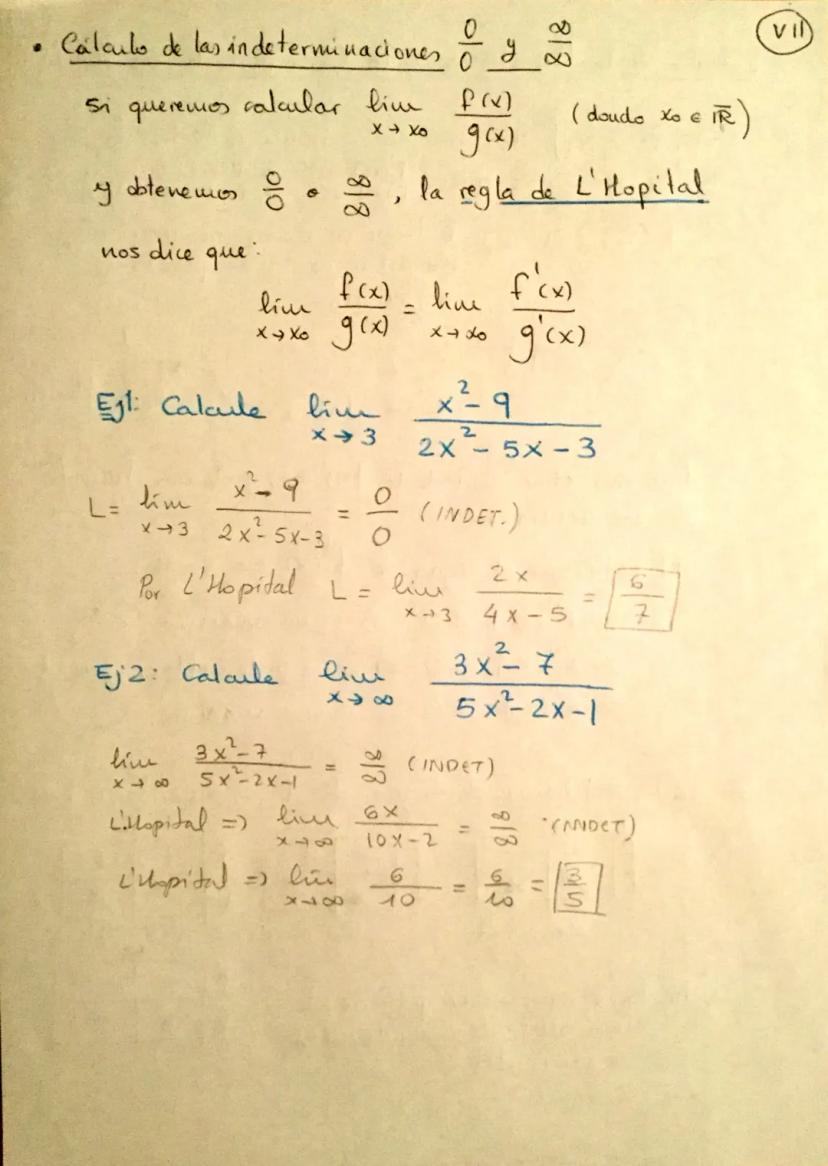 • Cálculo de las indeterminaciones 0/0 y ∞/∞ VII
Si queremos calcular lim x→x0 f(x)/g(x) (dondo x0 ∈ ℝ̅)
y obtenemos 0/0 o ∞/∞, la regla de L'Hopital
nos dice que:
lim x→x0 f(x)/g(x) = lim x→x0 f'(x)/g'(x)
Ej1: Calcule lim x→3 (x²-9)/(2x²-5x-3)
L= lim x→3 (x²-9)/(2x²-5x-3) = 0/0 (INDET.)
Por L'Hopital L = lim x→3 2x/(4x-5) = 6/7
Ej2: Calcule lim x→∞ (3x²-7)/(5x²-2x-1)
lim x→∞ (3x²-7)/(5x²-2x-1) = ∞/∞ (INDET)
L'Hopital => lim x→∞ 6x/(10x-2) = ∞/∞ (INDET)
L'Hopital => lim x→∞ 6/10 = 6/10 = 3/5